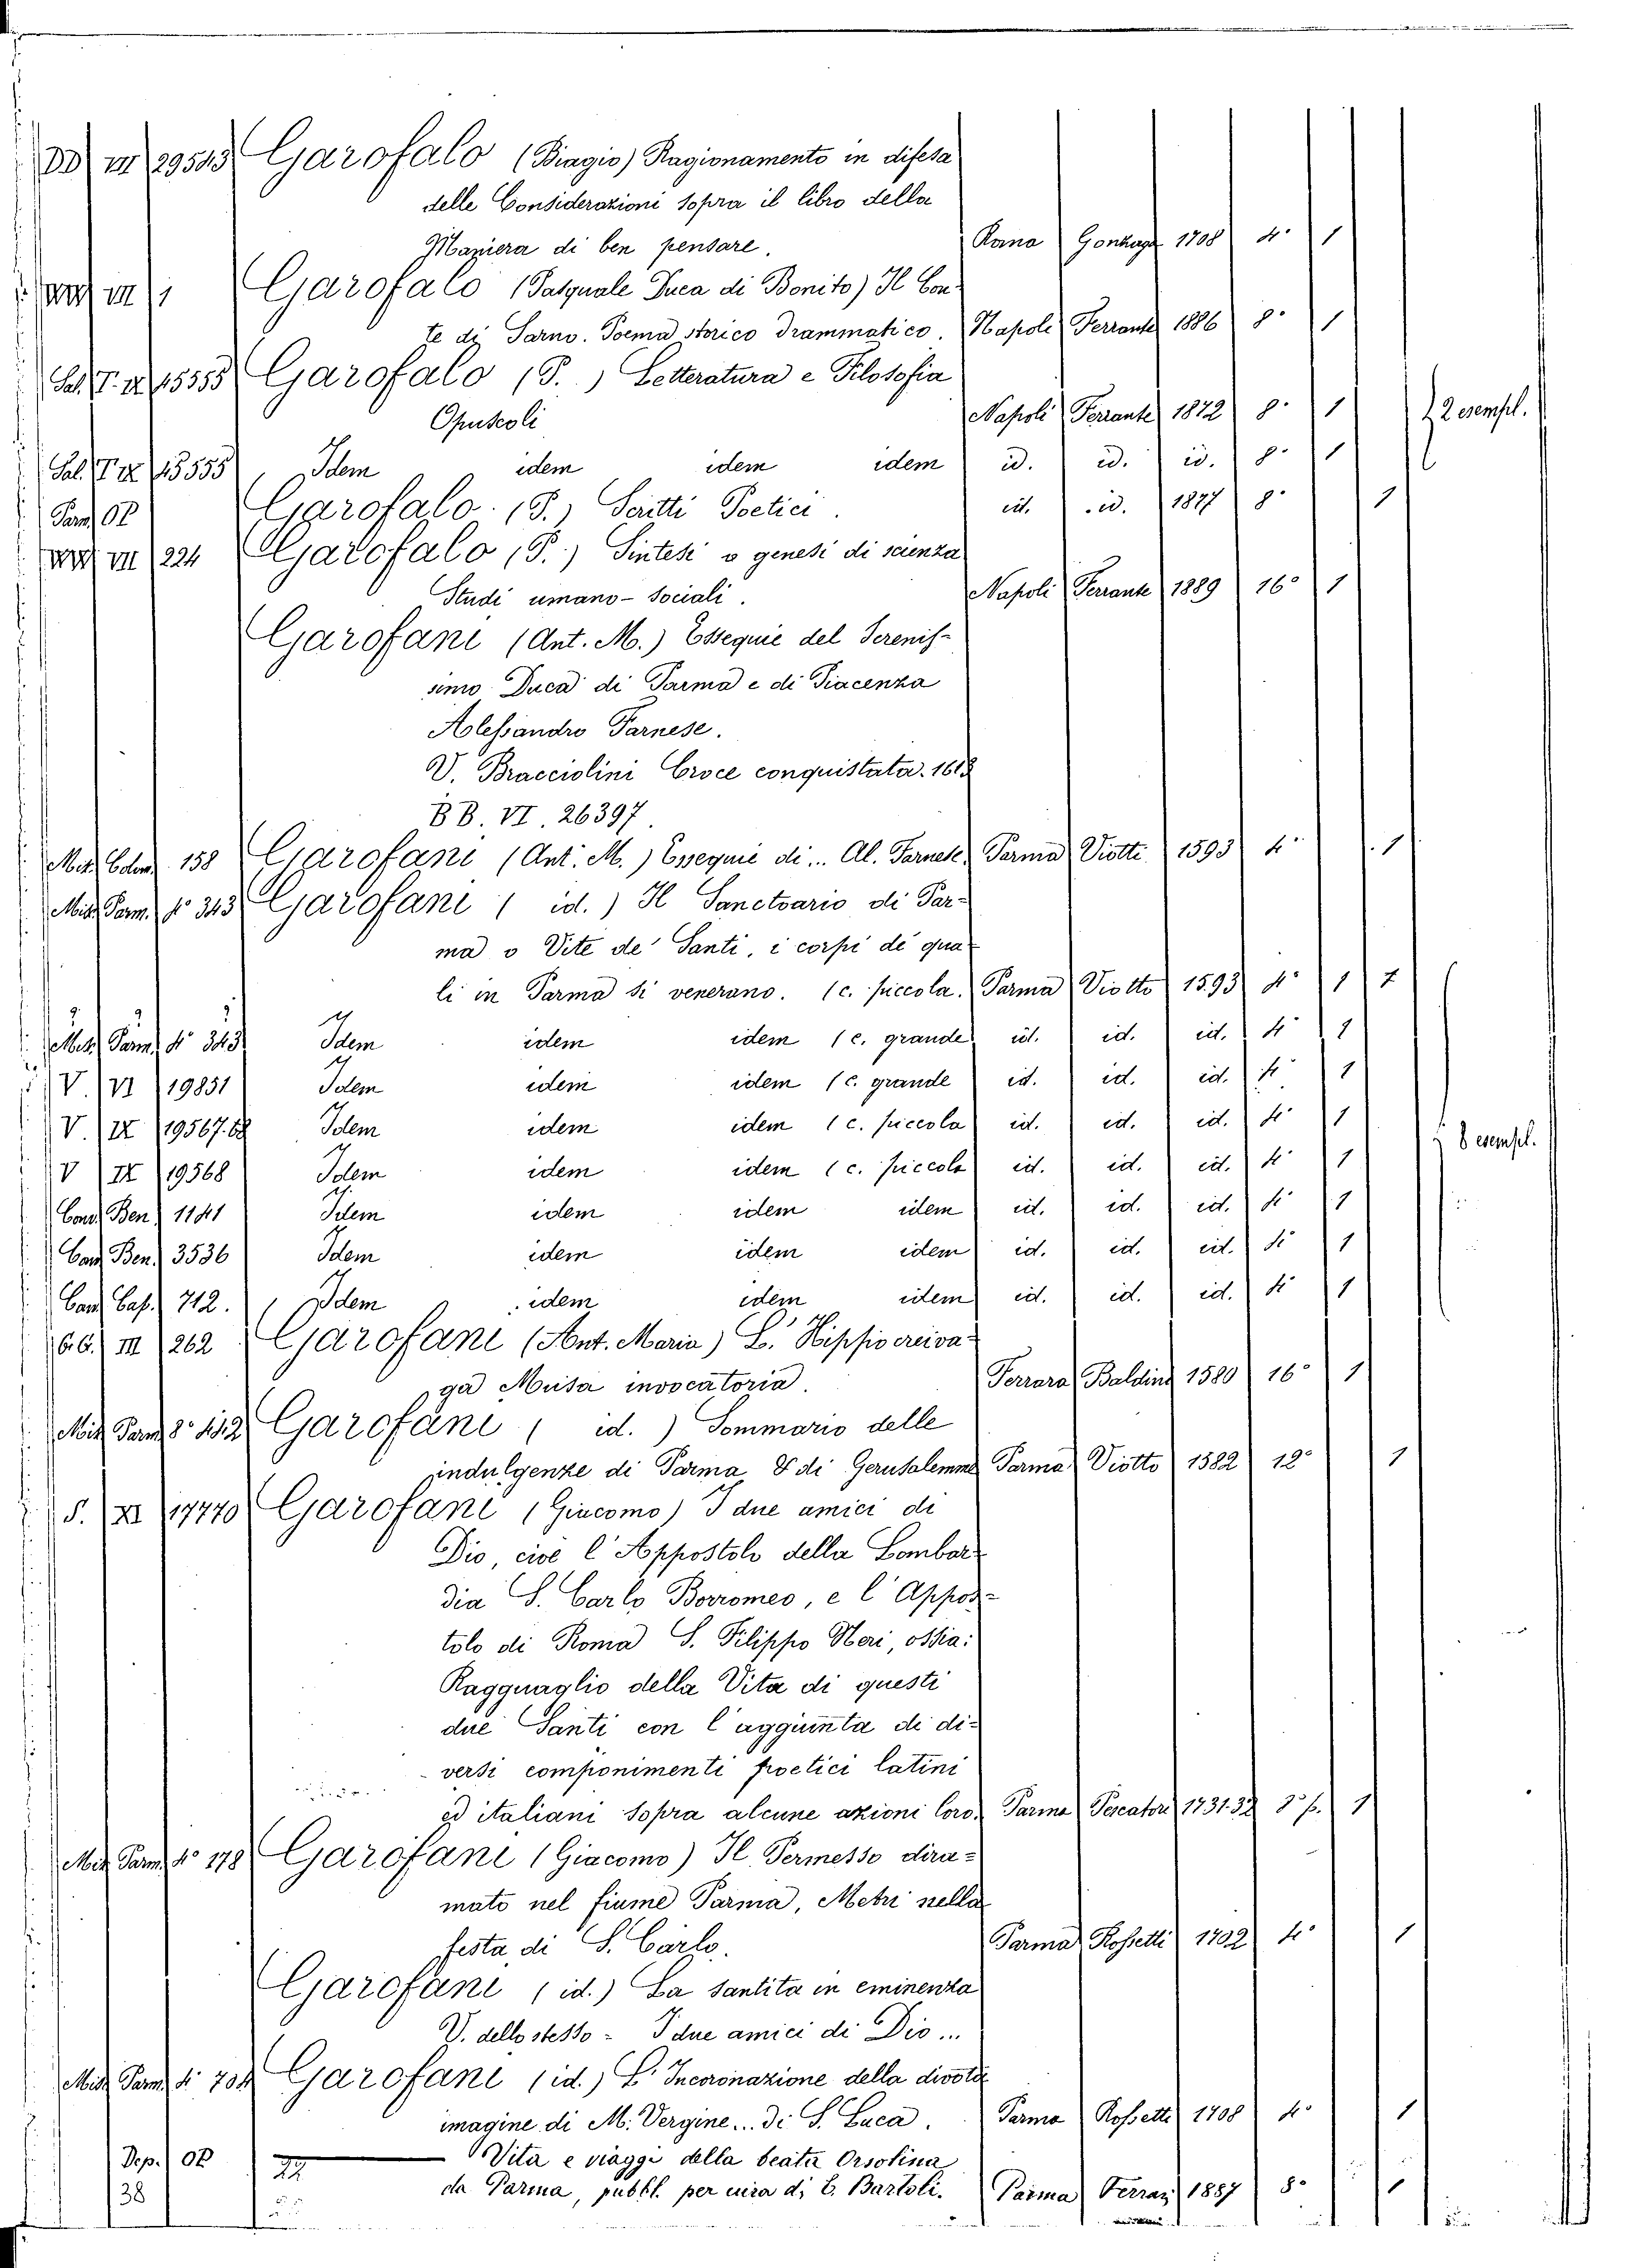 DD VII 29513 Garofalo (Biagio) Ragionamento in difesa
delle Considerazioni sopra il libro della
Maniera di ben pensare. Roma Gonzaga 1708 4° 1
VII 1 Garofalo (Pasquale Duca di Bonito) Il Con-
te di Sarno. Poema storico drammatico. Napoli Ferrante 1886 8° 1
Sal. T. IX 15555 Garofalo (P.) Letteratura e Filosofia
Opuscoli Napoli Ferrante 1872 8° 1 2 esempl.
Sal. T. IX 15555 Idem idem idem idem id. id. id. 8° 1
Parm. Garofalo (P.) Scritti Poetici. id. id. 1877 8° 1
VII 224 Garofalo (P.) Sintesi o genesi di scienza
Studi umano-sociali. Napoli Ferrante 1889 16° 1
Garofani (Ant. M.) Essequie del Serenis-
simo Duca di Parma e di Piacenza
Alessandro Farnese.
V. Bracciolini Croce conquistata. 1613
BB. VI. 26397.
Misc. 158 Garofani (Ant. M.) Essequie di... Al. Farnese. Parma Viotti 1593 4° 1
Misc. Parm. 4° 343 Garofani (id.) Il Sanctuario di Par-
ma o Vite de' Santi, i corpi de' qua-
li in Parma si venerano. (c. piccola. Parma Viotto 1593 4° 1
Misc. Parm. 4° 343 Idem idem idem (c. grande id. id. id. 4° 1
V. VI 19851 Idem idem idem (c. grande id. id. id. 4° 1
V. IX 19567.68 Idem idem idem (c. piccola id. id. id. 4° 1 8 esempl.
V IX 19568 Idem idem idem (c. piccola id. id. id. 4° 1
Cand. Ben. 1141 Idem idem idem idem id. id. id. 4° 1
Cand. Ben. 3536 Idem idem idem idem id. id. id. 4° 1
Cand. Cap. 712. Idem idem idem idem id. id. id. 4° 1
III 262 Garofani (Ant. Maria) L'
ga Musa invocatoria. Ferrara Baldini 1580 16° 1
Misc. Parm. 8° Garofani (id.) Sommario delle
indulgenze di Parma & di Gerusalemme Parma Viotto 1582 12° 1
S. XI 17770 Garofani (Giacomo) I due amici di
Dio, cioè l'Appostolo della Lombar-
dia S. Carlo Borromeo, e l'Appos-
tolo di Roma S. Filippo Neri, ossia:
Ragguaglio della Vita di questi
due Santi con l'aggiunta di di-
versi componimenti poetici latini
ed italiani sopra alcune azioni loro. Parma Pescatore 1731.32 8° p. 1
Misc. Parm. 4° 178 Garofani (Giacomo) Il Permesso dira-
mato nel fiume Parma, Metri nella
festa di S. Carlo. Parma Rossetti 1702 4° 1
Garofani (id.) La santita in eminenza
V. dello stesso - I due amici di Dio...
Misc. Parm. 4° 704 Garofani (id.) L'Incoronazione della divota
imagine di M. Vergine... di S. Luca. Parma Rossetti 1708 4° 1
Dep. Vita e viaggi della beata Orsolina
38 da Parma, pubbl. per cura di E. Bartoli. Parma Ferrari 1887 8° 1